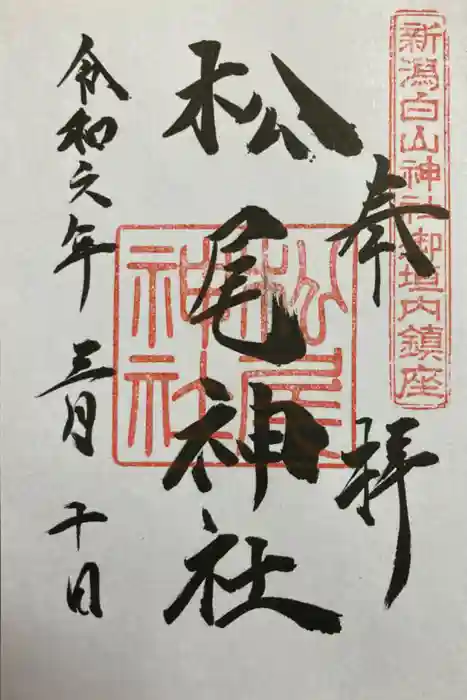 新潟白山神社御垣内鎮座
奉拝
松尾神社
松尾
神社
令和六年三月十日